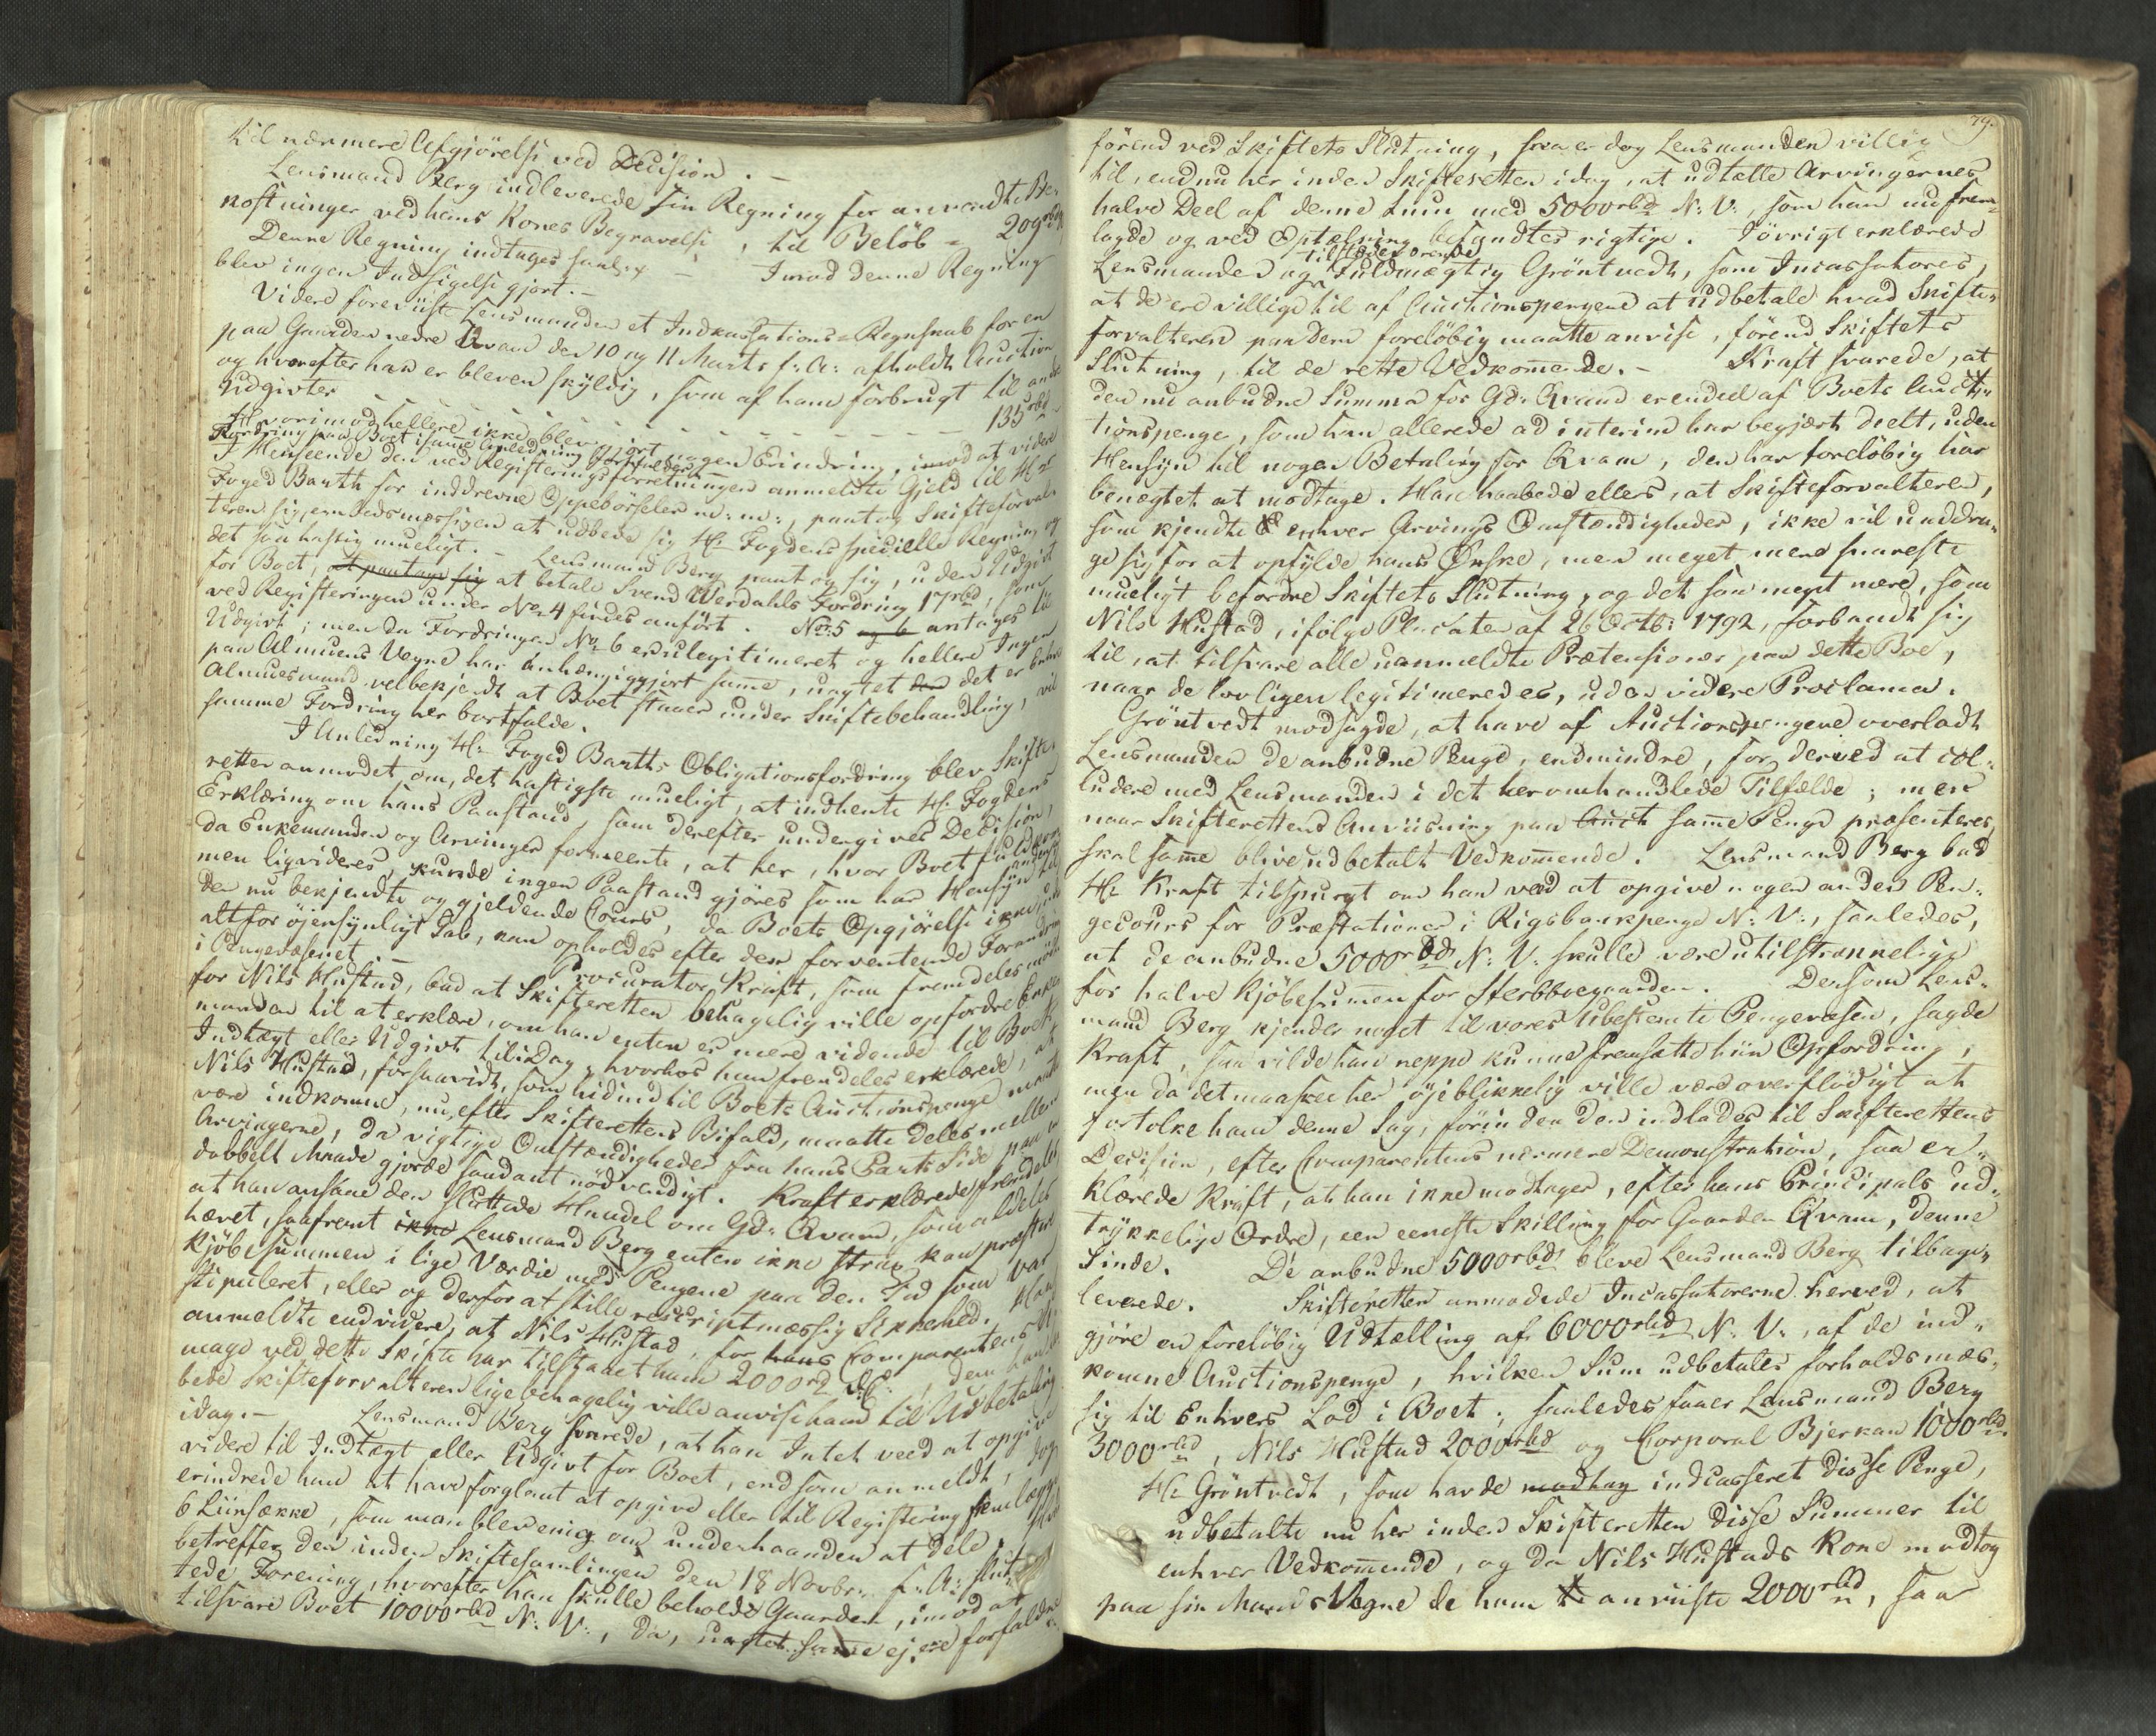 til nærmere Afgjörelse ved Decision. –
Lensmand Berg indleverede sin Regning for anvendte Be-
kostninger ved hans Kones Begravelse, til Belöb = 209 rbd
Denne Regning indtages saal: x – Imod denne Regning
blev ingen Indsigelse gjort. –
Videre foreviiste Lensmanden et Indkassations-Regnskab for en
paa Gaarden nedre Qvam den 10 og 11 Marts f: A: afholdt Auction
og hvorefter han er bleven skyldig, som af ham forbrugt til andre
Udgivter – – – – – 135 rbd
Hvorimod hellere ikke blev gjort nogen Erindring, imod at videre
Fordring paa Boet i samme Anledning bortfalder.
I Henseende den ved Registeringsforretningen anmeldte Gjeld til Hr
Foged Barth for inddrevne Oppebörseler m: m:, paatog Skifteforval-
teren sig, embedsmæssigen at udbede sig Hr Fogdens specielle Regning og
det saa hastig mueligt. – Lensmand Berg paatog sig, uden Udgivt
for Boet, at paatage sig at betale Svend Werdahls Fordring 17 rbd, som
ved Registeringen under No 4 findes anfört. No 5 og 6 antages til
Udgivt; men da Fordringen No 6 er ulegitimeret og hellere Ingen
paa Almuens Vegne har anhængiggjort samme, uagtet den det er enhver
Almuesmand velbekjendt at Boet staaer under Skiftebehandling, vil
samme Fordring her bortfalde.
I Anledning Hr Foged Barths Obligationsfordring blev Skifte-
retten anmodet om, det hastigste mueligt, at indhente Hr Fogdens
Erklæring om hans Paastand, som derefter undergives Decision,
da Enkemanden og Arvinger formeente, at her, hvor Boet fuldkom-
men liqvideres, kunde ingen Paastand gjöres som har Hensyn
den nu bekjendte og gjeldende Cours, da Boets Opgjörelse ikke, uden
altfor öjensynligt Tab, kan opholdes efter den forventende Forandring
i Pengevæsenet. – Procurator Kraft, som fremdeles mödte
for Nils Hustad, bad at Skifteretten behagelig ville opfordre Enke-
manden til at erklære, om han enten er mere vidende til Boets
Indtægt eller Udgivt til i Dag, hvorhos han fremdeles erklærede, at
Nils Hustad, forsaavidt, som hidind til Boets Auctionspenge maatte
være indkomne, nu, efter Skifterettens Bifald, maatte deles mellem
Arvingerne, da vigtige Omstændigheder fra hans Parts Side paa en
dobbelt Maade gjorde saadant nödvendigt. Kraft erklærede fremdeles
at han ansaae den sluttede Handel om Gd: Qvam, som aldeles
hævet, saafremt ikke Lensmand Berg enten ikke strax kan præstere
Kjöbesummen i lige Værdie med Pengene paa den Tid som var
stipuleret, eller og derfor at stille rescriptmæssig Sikkerhed. Han
anmeldte endvidere, at Nils Hustad, for hans Comparentens U-
mage ved dette Skifte har tilstaaet ham 2000 rd D.C:, dem han
bede Skifteforvalteren ligebehagelig ville anvise ham til Udbetaling
idag. – Lensmand Berg svarede, at han Intet veed at opgive
videre til Indtægt eller Udgivt for Boet, end som anmeldt, dog
erindrede han at have forglemt at opgive eller til Registering fremlægge
6 Liinsække, som man blev enig om underhaanden at dele. Hvad
betreffer den inden Skiftesamlingen den 18 Novbr: f: A: slut-
tede Forening, hvorefter han skulle beholde Gaarden, imod at
tilsvare Boet 10000 rbd N: V:, da, uagtet samme ej ere forfaldne
79.
förend ved Skiftets Slutning, saa er dog Lensmanden villig
til, endnu her inden Skifteretten i dag, at udtælle Arvingernes
halve Deel af denne Sum med 5000 rbd N: V:, som han nu frem-
lagde og ved Optælning befandtes rigtige. Iövrigt erklærede
tilstædeværende
Lensmanden og Fuldmægtig Gröntvedt, som Incassatores,
at de ere villige til af Auctionspengene at udbetale hvad Skifte-
forvalteren paa dem foreløbig maatte anvise, förend Skiftets
Slutning, til de rette Vedkommende. – Kraft svarede, at
den nu anbudne Summa for Gd: Qvam er endeel af Boets Auc-
tionspenge, som han allerede ad interim har begjært deelt, uden
Hensyn til nogen Betaling for Qvam, den har forelöbig har
benægtet at modtage. Han haabede ellers, at Skifteforvalteren,
som kjendte enhver Arvings Omstændigheder, ikke vil unddra-
ge sig for at opfylde hans Önske, men meget mere snareste
mueligt befordre Skiftets Slutning, og det saa meget mere, som
Nils Hustad, ifölge Placaten af 26 Octb: 1792, forbandt sig
til, at tilsvare alle uanmeldte Prætensioner paa dette Boe,
naar de lovligen legitimeredes, uden videre Proclama.
Gröntvedt modsagde, at have af Auctionspengene overladt
Lensmanden de anbudne Penge, endmindre, for derved at col-
ludere med Lensmanden i det her omhandlede Tilfælde; men
naar Skifterettens Anviisning paa Auct samme Penge præsenteres,
skal samme blive udbetalt Vedkommende. Lensmand Berg bad
Hr Kraft tilspurgt om han veed at opgive nogen anden Pen-
gecours for Præstationer i Rigsbankpenge N: V:, saaledes,
at de anbudne 5000 rbd N: V: skulle være utilstrækkelige
for halve Kjöbesummen for Sterbboegaarden. Dersom Lens-
mand Berg kjender noget til vores ubestemte Pengevæsen, sagde
Kraft, saa vilde han neppe kunne fremsætte hiin Opfordring;
men da det maaskee her öjeblikkelig ville være overflödigt at
fortolke ham denne Sag, förinden den indlades til Skifterettens
Decision, efter Comparentens nærmere Demonstration, saa er-
klærede Kraft, at han ikke modtager, efter hans Principals ud-
trykkelige Ordre, een eneste Skilling for Gaarden Qvam, denne
Sinde. De anbudne 5000 rbd bleve Lensmand Berg tilbage-
leverede. Skifteretten anmodede Incassatorerne herved, at
gjöre en forelöbig Udtælling af 6000 rbd N: V:, af de ind-
komne Auctionspenge, hvilken Sum udbetales forholdsmæs-
sig til Enhvers Lod i Boet; saaledes faaer Lensmand Berg
3000 rbd, Nils Hustad 2000 rbd og Corporal Bjerkan 1000 rbd.
Hr Gröntvedt, som havde modtag indcasseret disse Penge,
udbetalte nu her inden Skifteretten disse Summer til
enhver Vedkommende, og da Nils Hustads Kone modtog
paa sin Mands Vegne de ham anviiste 2000 rbd, saa